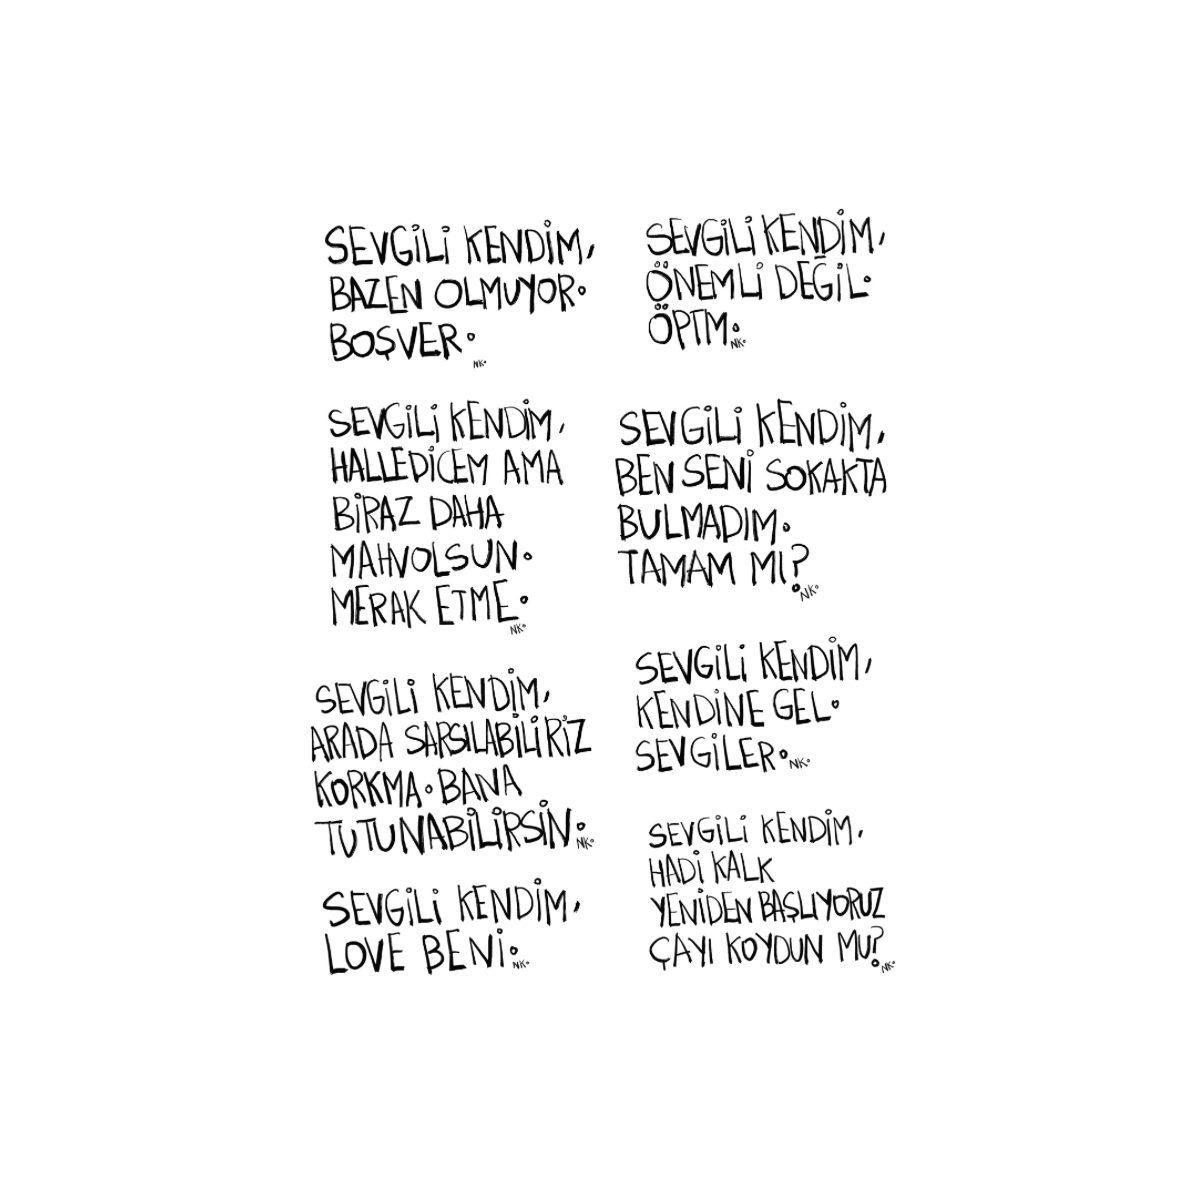 SEVGİLİ KENDİM,
BAZEN OLMUYOR.
BOŞVER.
NK.
SEVGİLİ KENDİM,
HALLEDİCEM AMA
BİRAZ DAHA
MAHVOLSUN.
MERAK ETME.
NK.
SEVGİLİ KENDİM,
ARADA SARSILABİLİRİZ
KORKMA. BANA
TUTUNABİLİRSİN.
NK.
SEVGİLİ KENDİM,
LOVE BENİ.
NK.
SEVGİLİ KENDİM,
ÖNEMLİ DEĞİL.
ÖPTM.
NK.
SEVGİLİ KENDİM,
BEN SENİ SOKAKTA
BULMADIM.
TAMAM MI?
NK.
SEVGİLİ KENDİM,
KENDİNE GEL.
SEVGİLER.
NK.
SEVGİLİ KENDİM,
HADİ KALK
YENİDEN BAŞLIYORUZ
ÇAYI KOYDUN MU?
NK.